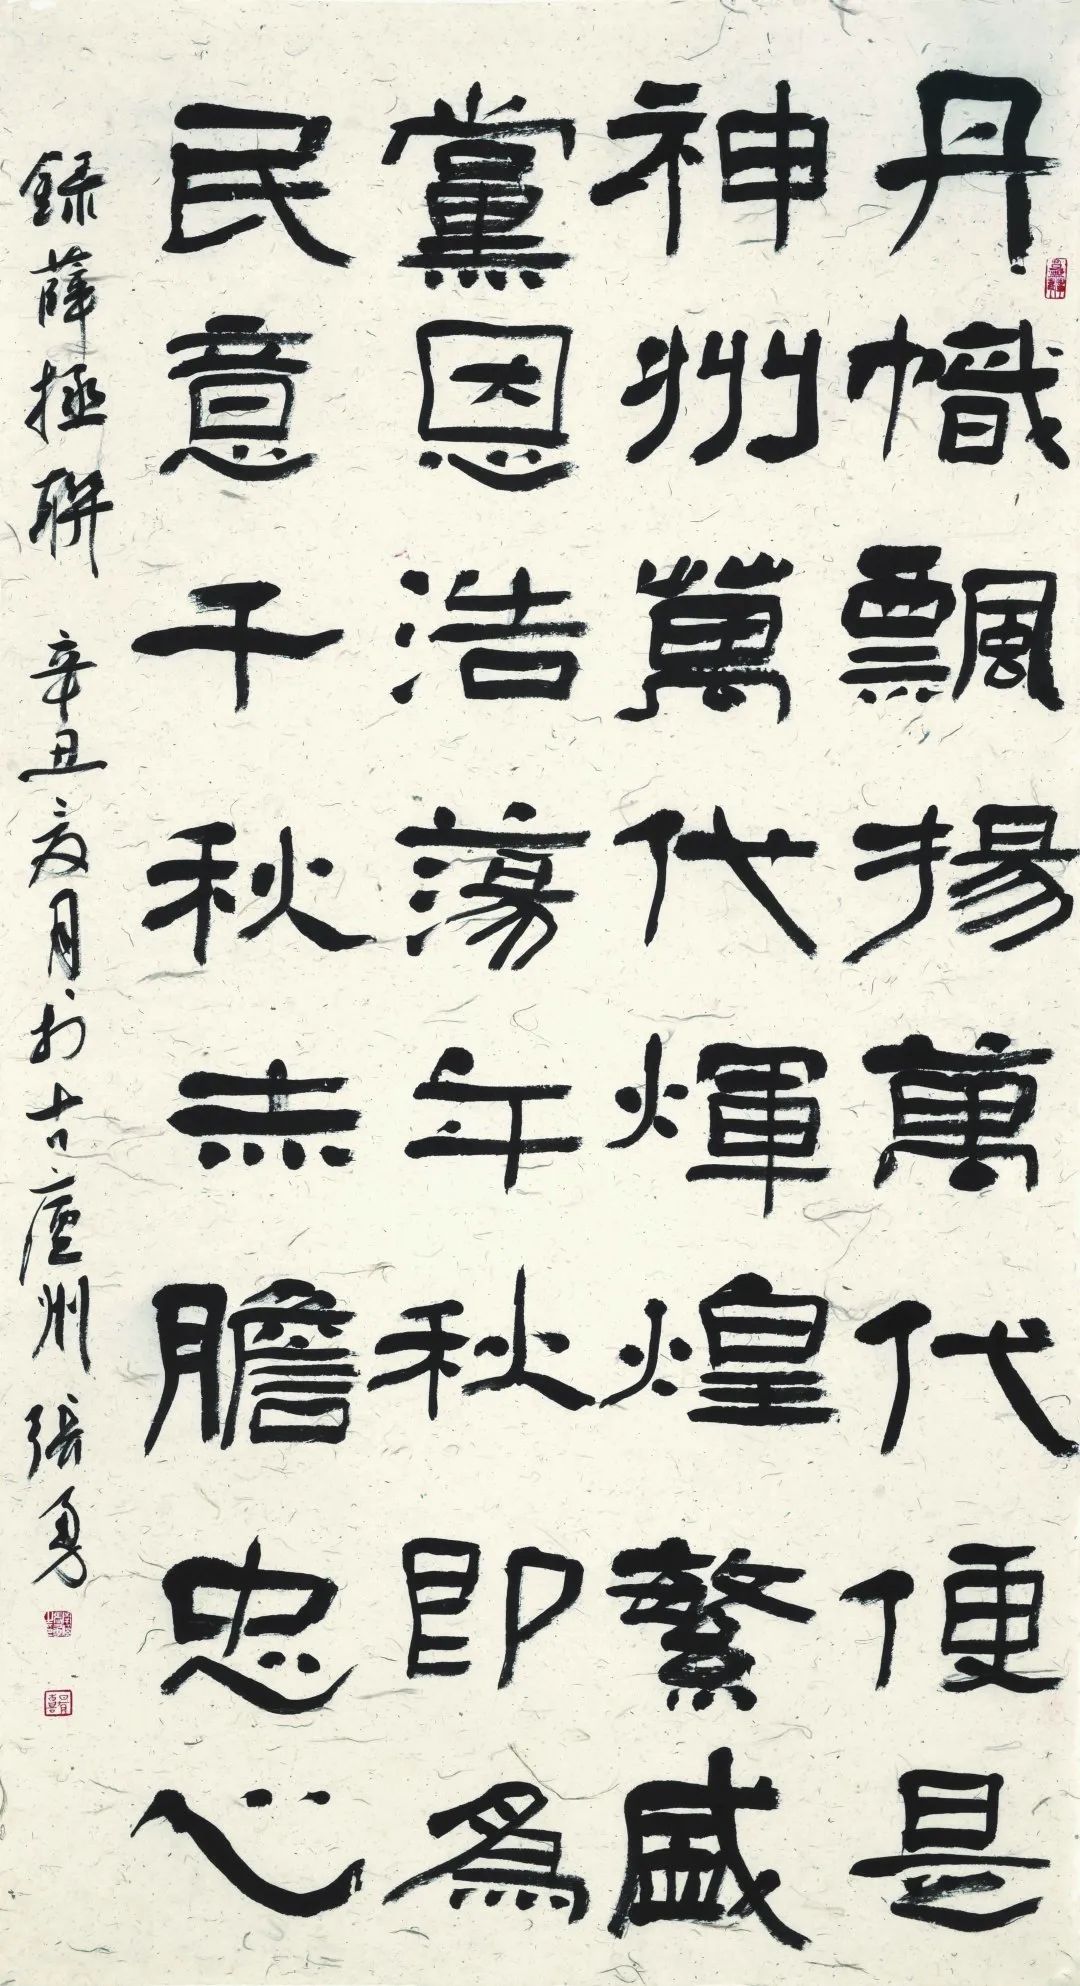 丹幟飄揚萬代便是
神州萬代輝煌繁盛
黨恩浩蕩千秋即爲
民意千秋赤膽忠心
錄薛拯聯 辛丑夏月於古廬州張勇